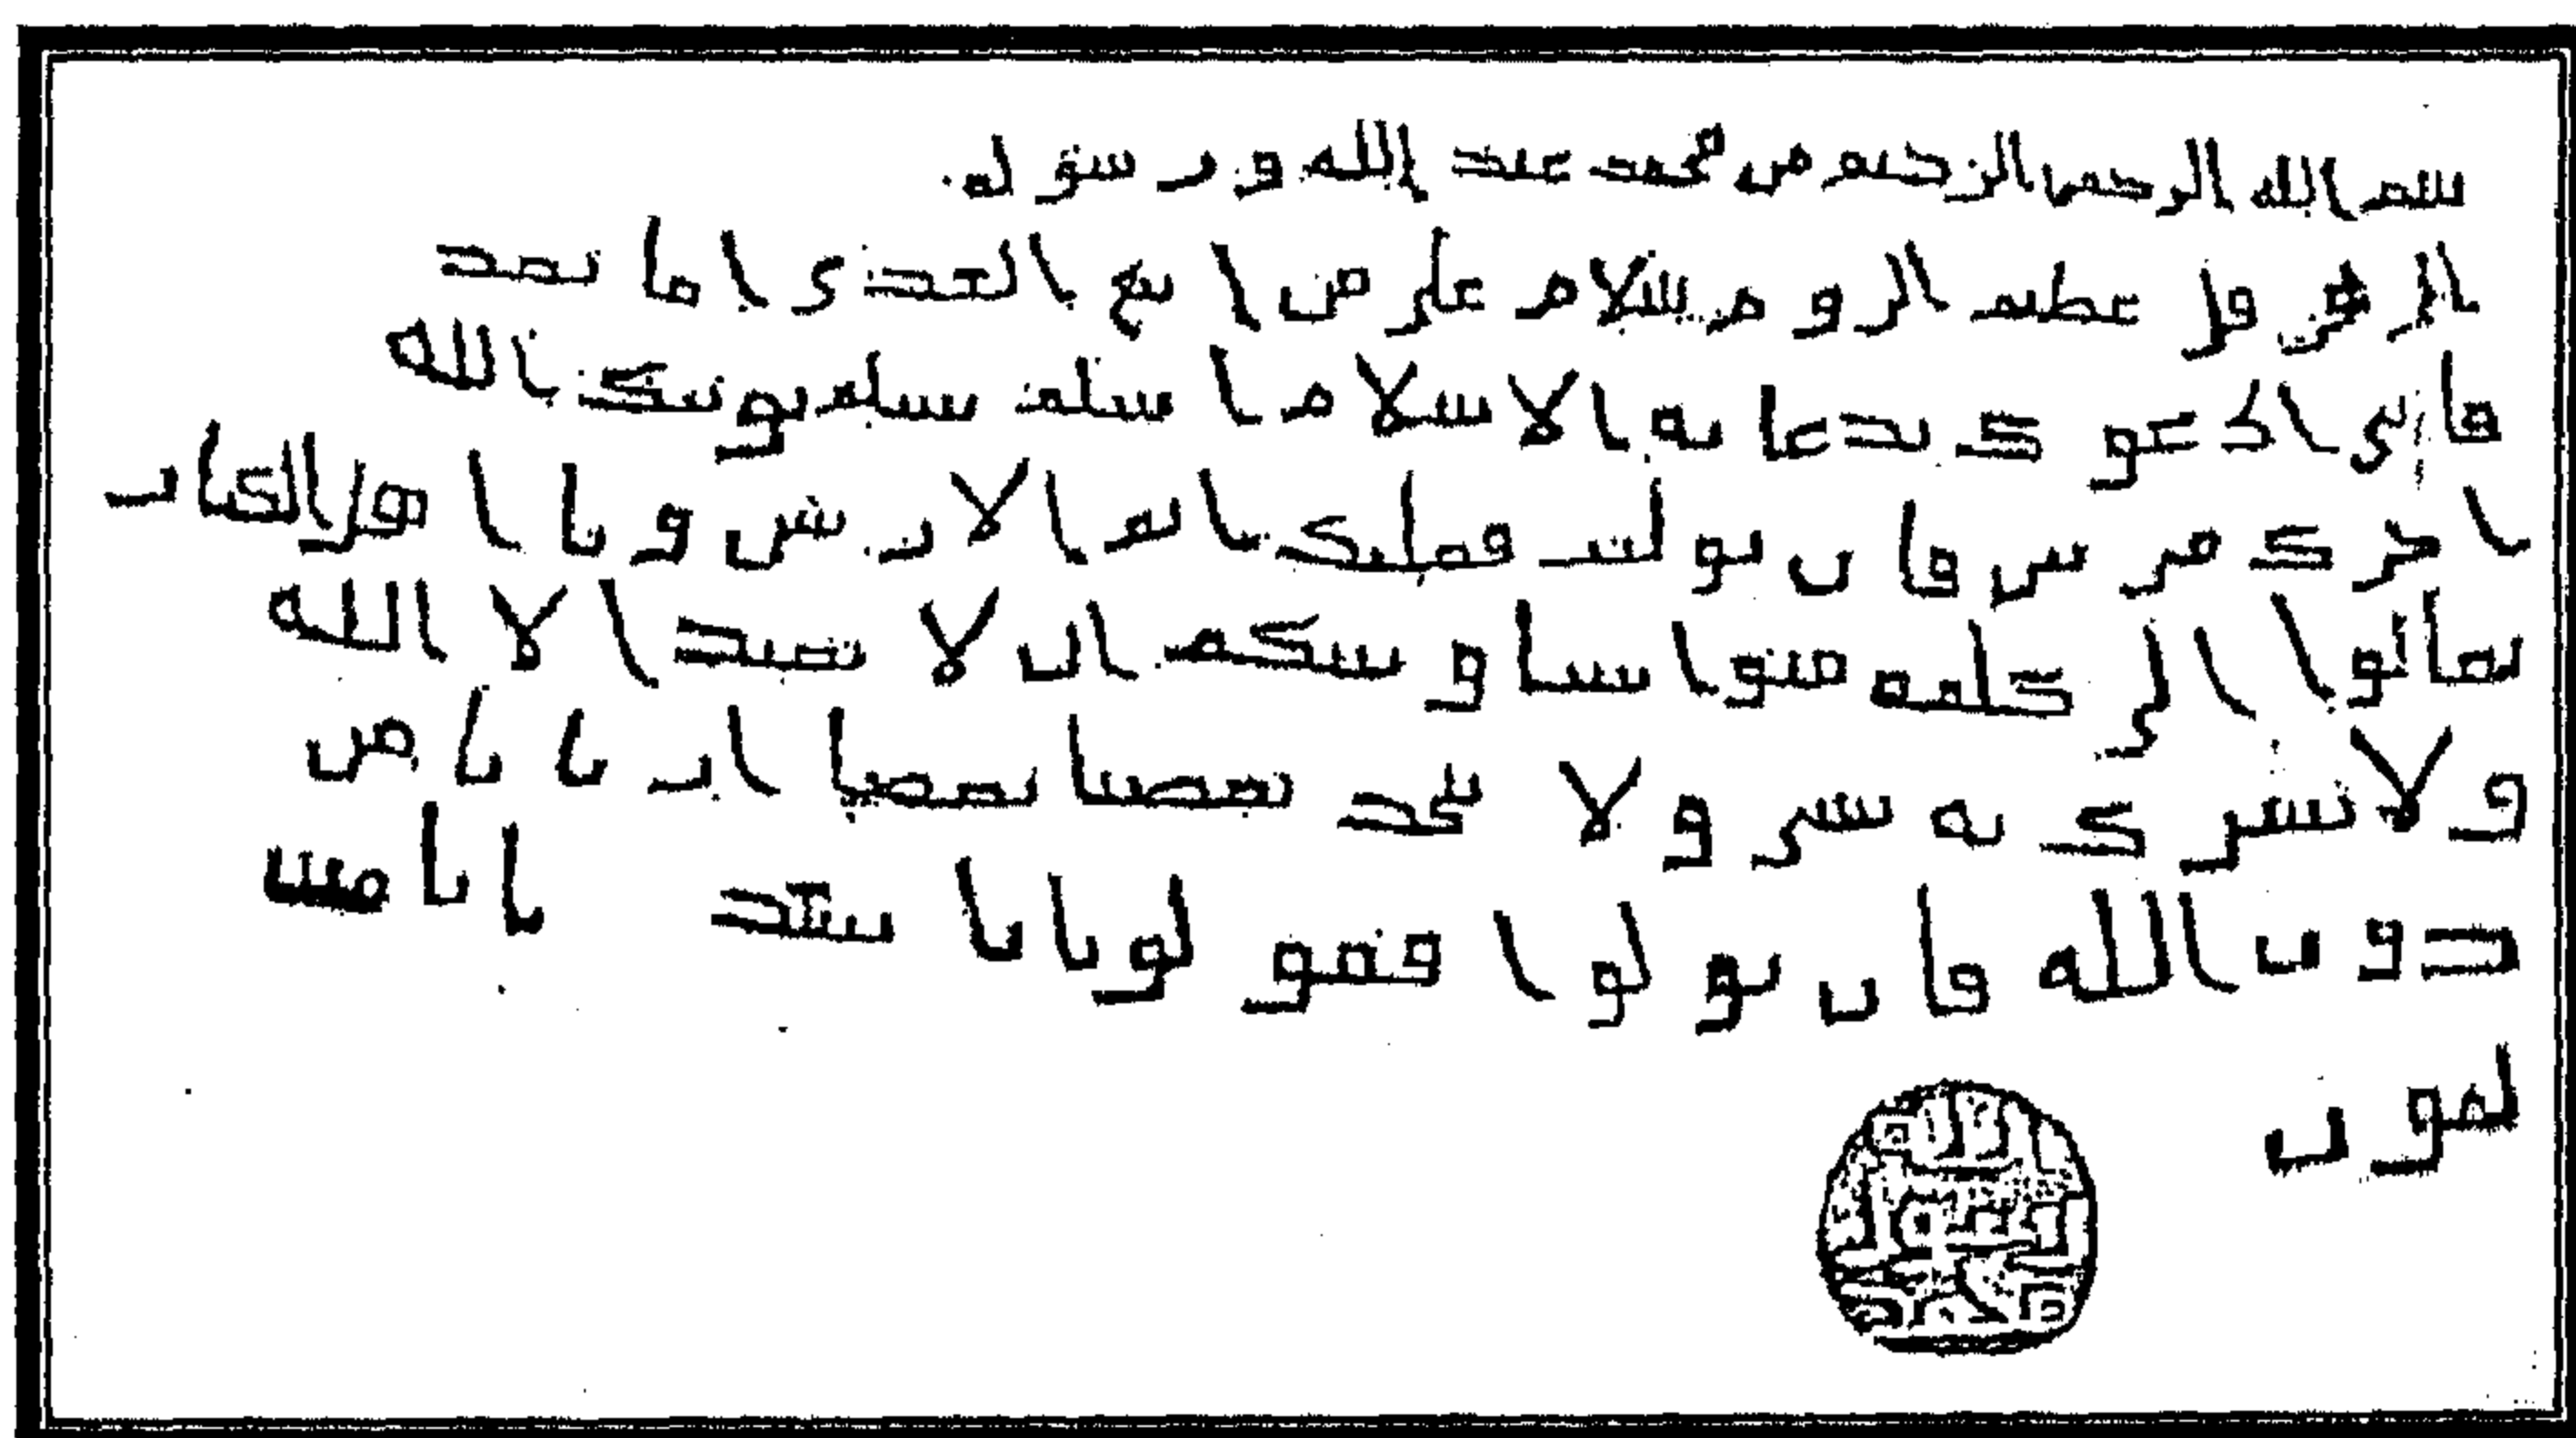 بسم الله الرحمن الرحيم من محمد عبد الله ورسوله
الى هرقل عظيم الروم سلام على من اتبع الهدى اما بعد
فانى ادعوك بدعايه الاسلام اسلم تسلم يوتيك الله
اجرك مرتين فان توليت فعليك اثم الاريسين ويا اهل الكتاب
تعالوا الى كلمه سوا بيننا وبينكم ان لا نعبد الا الله
ولا نشرك به شى ولا يتخذ بعضنا بعضا اربابا من
دون الله فان تولوا فقولوا اشهدوا بانا مس
لمون
الله
رسول
محمد